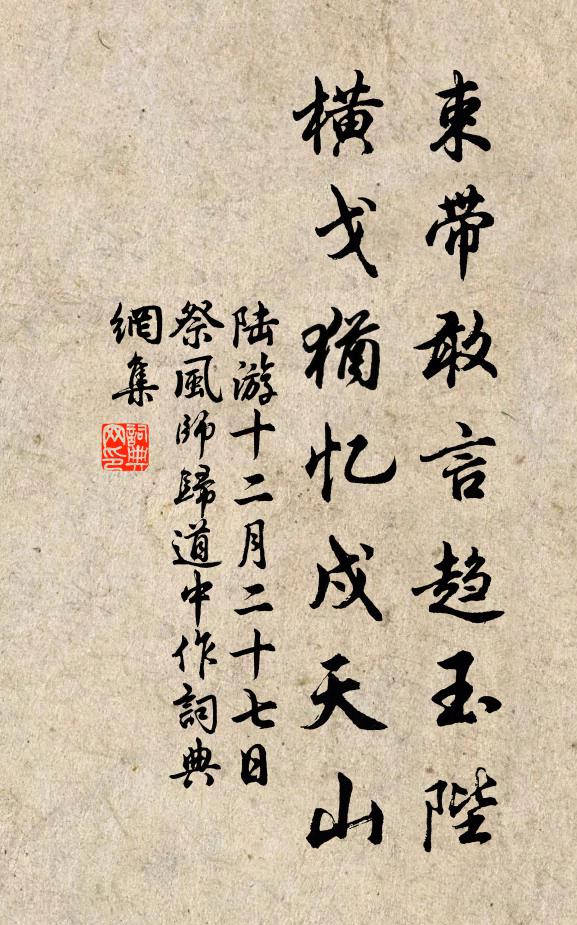 束带敢言趋玉陛
横戈犹忆戍天山
陆游十二月二十七日
祭風师歸道中作詞典
網集
詞典
网印